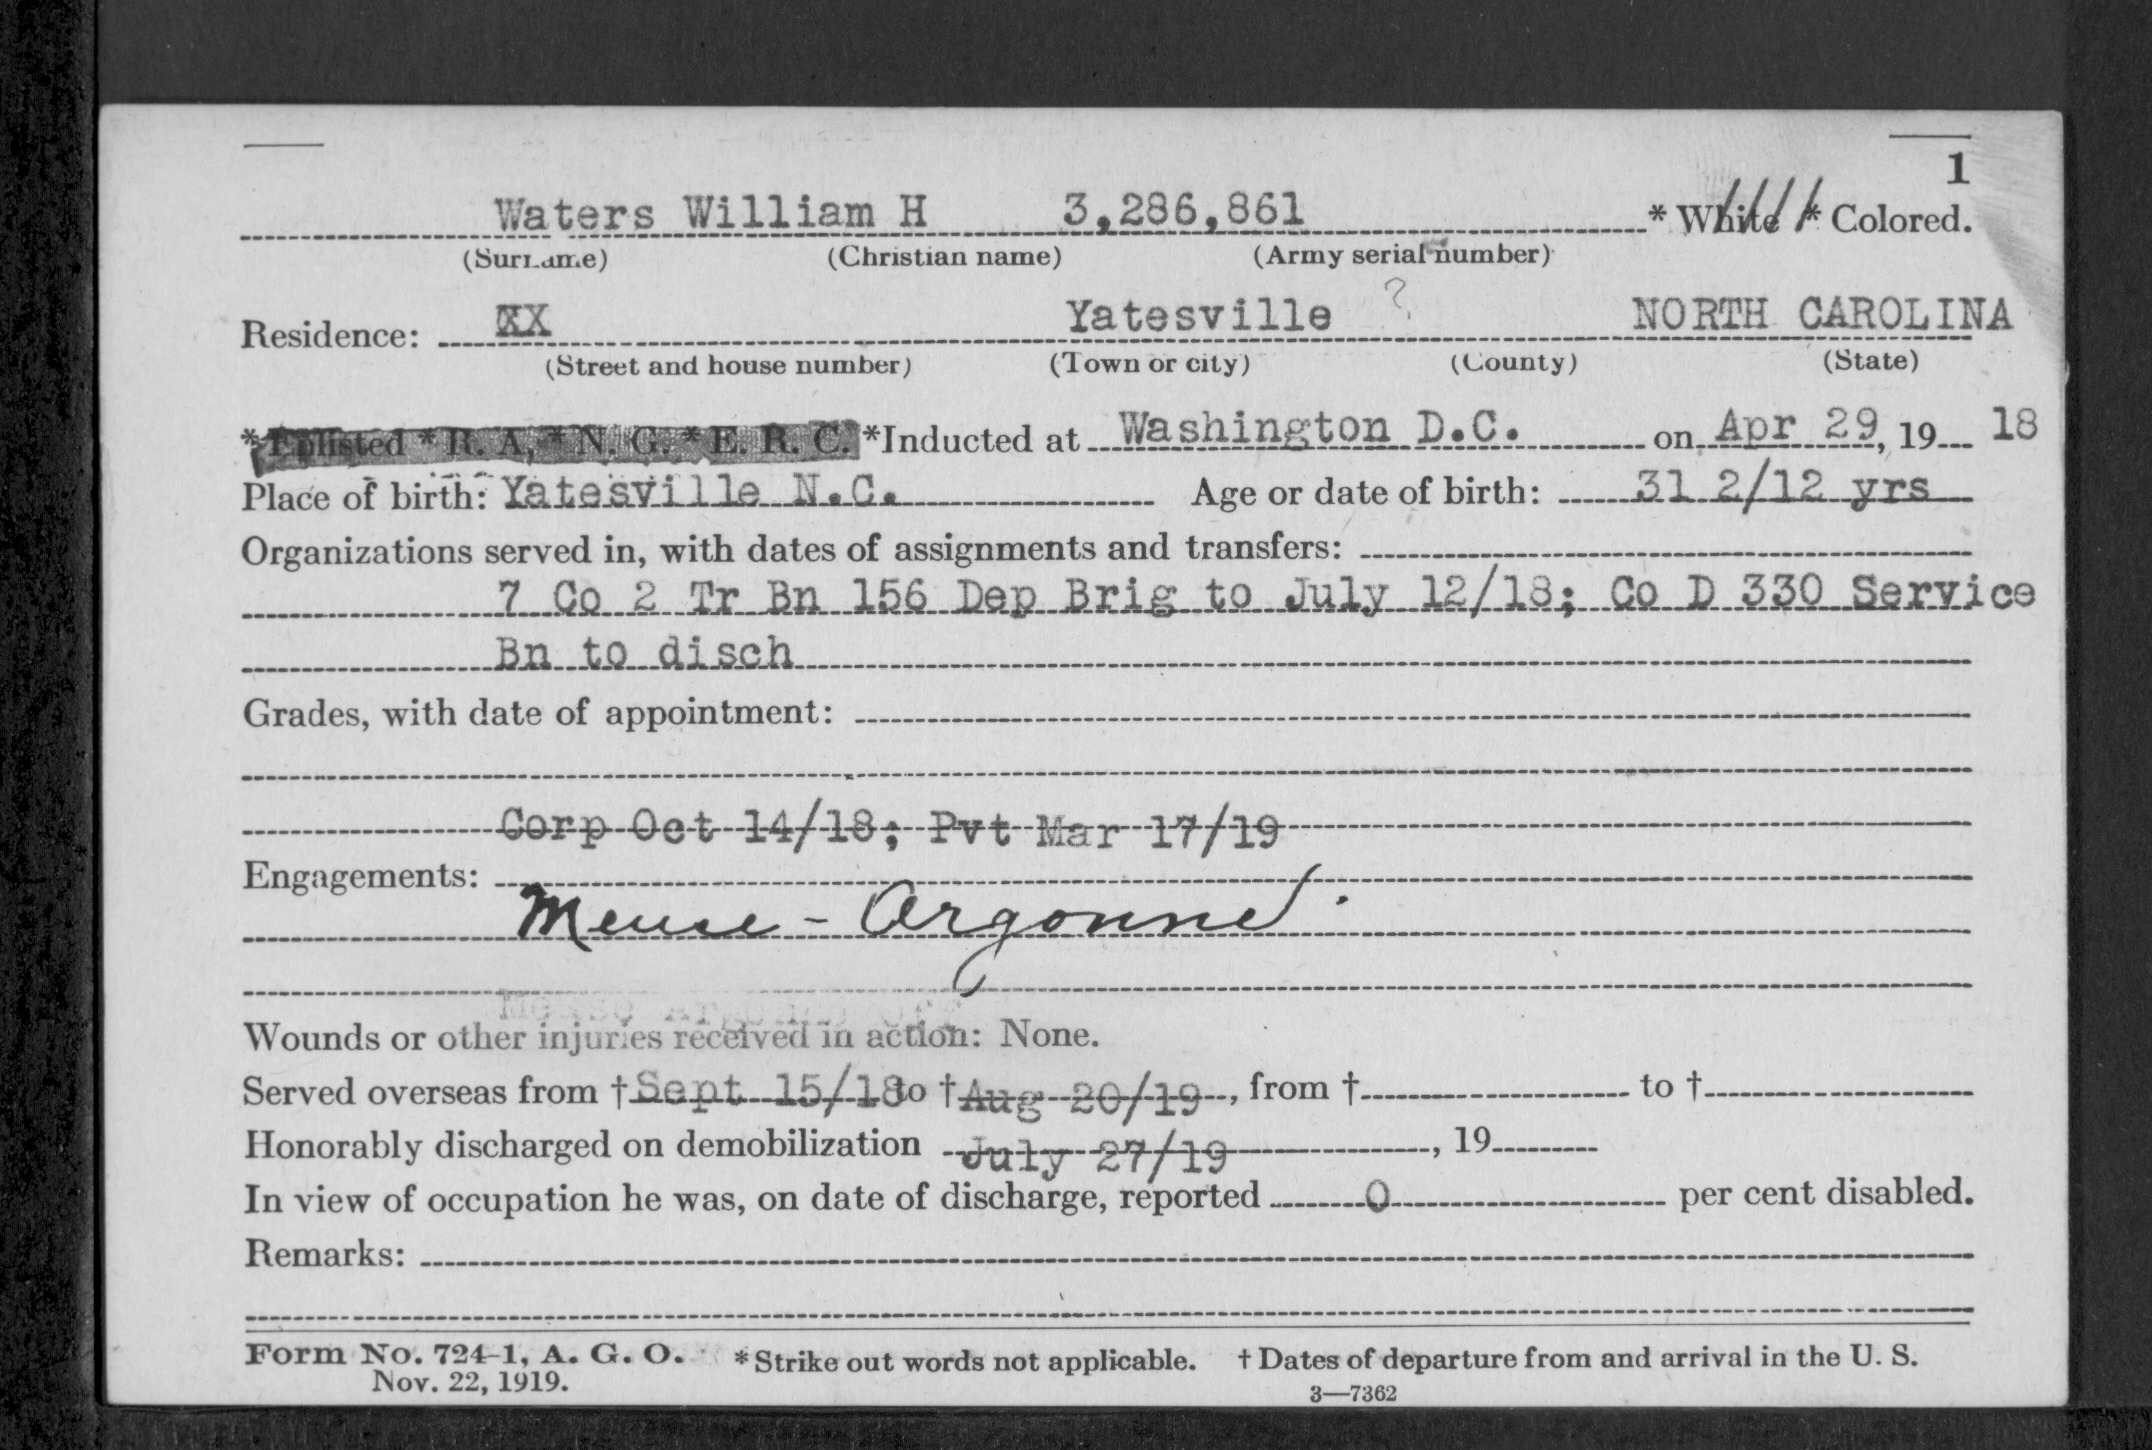 1
Waters William H 3,286,861 * White * Colored.
(Surname) (Christian name) (Army serial number)
Residence: XX Yatesville ? NORTH CAROLINA
(Street and house number) (Town or city) (County) (State)
*Enlisted * R. A, * N. G. * E. R. C. *Inducted at Washington D.C. on Apr 29, 19 18
Place of birth: Yatesville N.C. Age or date of birth: 31 2/12 yrs
Organizations served in, with dates of assignments and transfers:
7 Co 2 Tr Bn 156 Dep Brig to July 12/18; Co D 330 Service
Bn to disch
Grades, with date of appointment:
Corp Oct 14/18; Pvt Mar 17/19
Engagements:
Meuse - Argonne
Meuse Argonne Off
Wounds or other injuries received in action: None.
Served overseas from † Sept 15/18 to † Aug 20/19, from † to †
Honorably discharged on demobilization July 27/19, 19
In view of occupation he was, on date of discharge, reported 0 per cent disabled.
Remarks:
Form No. 724-1, A. G. O. * Strike out words not applicable. † Dates of departure from and arrival in the U. S.
Nov. 22, 1919. 3—7362